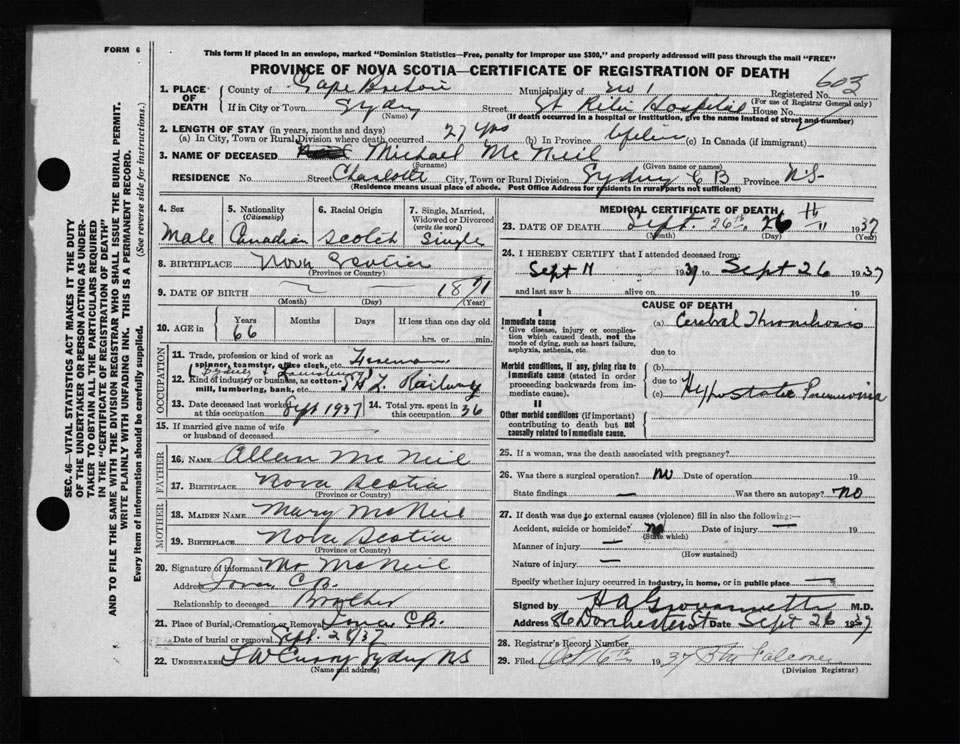 FORM 6
This form if placed in an envelope, marked "Dominion Statistics—Free, penalty for improper use $300," and properly addressed will pass through the mail "FREE"
PROVINCE OF NOVA SCOTIA—CERTIFICATE OF REGISTRATION OF DEATH
603
1. PLACE OF DEATH County of Cape Breton Municipality of Registered No.
(For use of Registrar General only)
If in City or Town Sydney Street St Rita Hospital House No.
(Name) (If death occurred in a hospital or institution, give the name instead of street and number)
2. LENGTH OF STAY (in years, months and days)
(a) In City, Town or Rural Division where death occurred 27 yrs (b) In Province (c) In Canada (if immigrant)
3. NAME OF DECEASED Michael Mc Neil
(Surname) (Given name or names)
RESIDENCE No. Street Charlotte City, Town or Rural Division Sydney C B Province N S-
(Residence means usual place of abode. Post Office Address for residents in rural parts not sufficient)
4. Sex 5. Nationality (Citizenship) 6. Racial Origin 7. Single, Married, Widowed or Divorced (write the word)
Male Canadian Scotch Single
8. BIRTHPLACE Nova Scotia
(Province or Country)
9. DATE OF BIRTH — — 1871
(Month) (Day) (Year)
10. AGE in Years Months Days If less than one day old
66 hrs. or min.
OCCUPATION
11. Trade, profession or kind of work as spinner, teamster, office clerk, etc.
12. Kind of industry or business, as cotton-mill, lumbering, bank, etc. Railway
13. Date deceased last worked at this occupation Sept 1937 14. Total yrs. spent in this occupation 36
15. If married give name of wife or husband of deceased —
FATHER
16. NAME Allan Mc Neil
17. BIRTHPLACE Nova Scotia
(Province or Country)
MOTHER
18. MAIDEN NAME Mary McNeil
19. BIRTHPLACE Nova Scotia
(Province or Country)
20. Signature of informant McNeil
Address Iona C.B.
Relationship to deceased Brother
21. Place of Burial, Cremation or Removal Iona C.B.
Date of burial or removal Sept. 28/37
22. UNDERTAKER Curry Sydney NS
(Name and address)
MEDICAL CERTIFICATE OF DEATH
23. DATE OF DEATH Sept. 26th 26th 1937
(Month) (Day) (Year)
24. I HEREBY CERTIFY that I attended deceased from:
Sept 11 1937 to Sept 26 1937
and last saw h alive on 19
CAUSE OF DEATH
I
Immediate cause (a) Cerebral Thrombosis
* Give disease, injury or complication which caused death, not the mode of dying, such as heart failure, asphyxia, asthenia, etc.
due to
Morbid conditions, if any, giving rise to immediate cause (stated in order proceeding backwards from immediate cause).
(b)
due to
(c) Hypostatic Pneumonia
II
Other morbid conditions (if important) contributing to death but not causally related to immediate cause.
25. If a woman, was the death associated with pregnancy?
26. Was there a surgical operation? No Date of operation 19
State findings — Was there an autopsy? No
27. If death was due to external causes (violence) fill in also the following:—
Accident, suicide or homicide? no Date of injury — 19
(State which)
Manner of injury —
(How sustained)
Nature of injury —
Specify whether injury occurred in industry, in home, or in public place —
Signed by M.D.
Address 86 Dorchester St Date Sept 26 1937
28. Registrar's Record Number
29. Filed Oct 6th 1937 Falconer
(Division Registrar)
SEC. 46—VITAL STATISTICS ACT MAKES IT THE DUTY
OF THE UNDERTAKER OR PERSON ACTING AS UNDER-
TAKER TO OBTAIN ALL THE PARTICULARS REQUIRED
IN THE "CERTIFICATE OF REGISTRATION OF DEATH"
AND TO FILE THE SAME WITH THE DIVISION REGISTRAR WHO SHALL ISSUE THE BURIAL PERMIT.
WRITE PLAINLY WITH UNFADING INK. THIS IS A PERMANENT RECORD.
Every item of information should be carefully supplied. (See reverse side for instructions.)